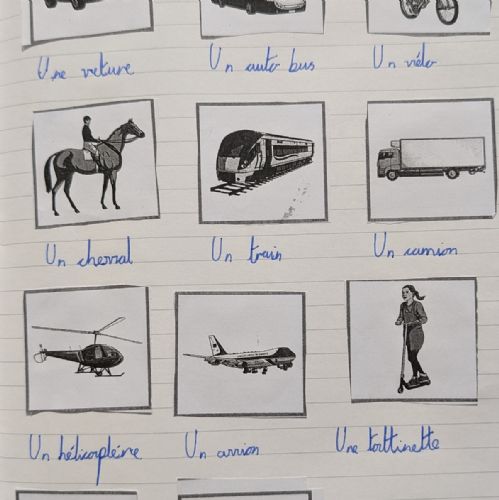 Une voture
Un auto bus
Un vélo
Un cherval
Un train
Un camion
Un hélicorplère
Un arrion
Une tolttinette